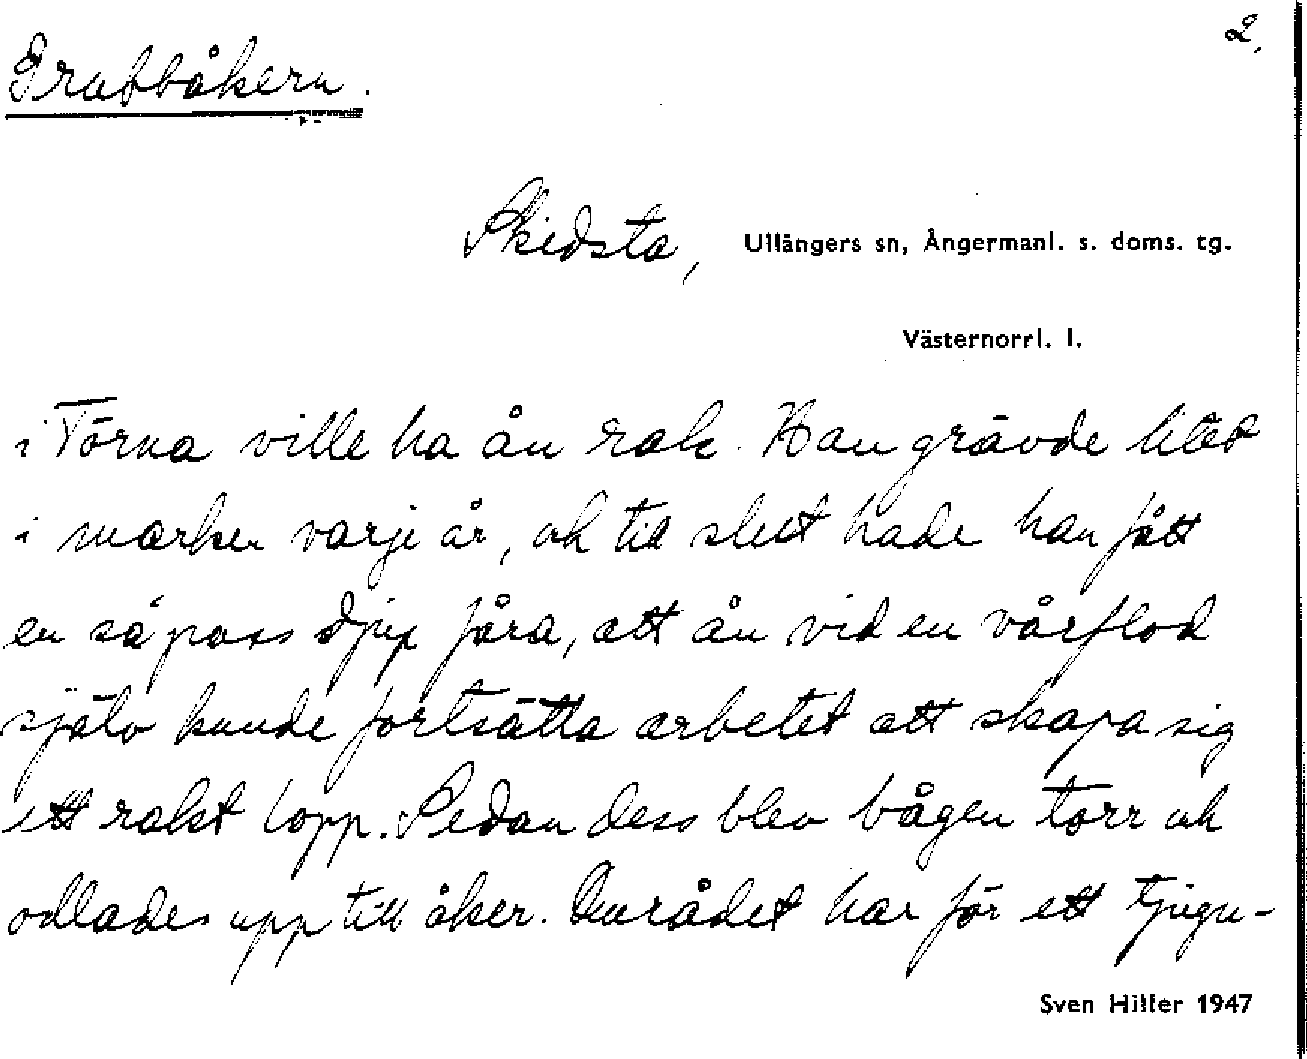 2.
Grubbåkern.
Skidsta, Ullångers sn, Ångermanl. s. doms. tg.
Västernorrl. l.
i Törna ville ha ån rak. Han grävde litet
i marken varje år, och till slut hade han fått
en så pass djup fåra, att ån vid en vårflod
själv kunde fortsätta arbetet att skapa sig
ett rakt lopp. Sedan dess blev bågen torr och
odlades upp till åker. Området har för ett tjugu-
Sven Hiller 1947